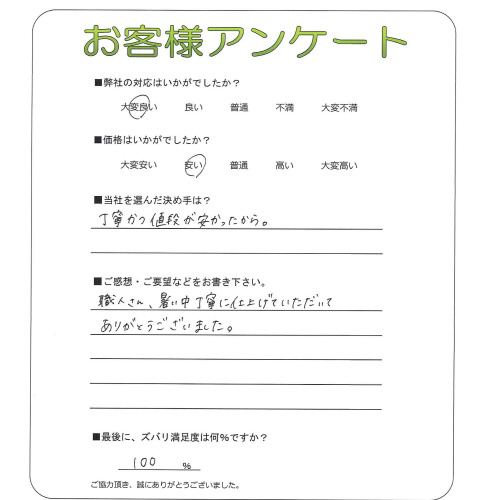 お客様アンケート
■弊社の対応はいかがでしたか？
大変良い 良い 普通 不満 大変不満
■価格はいかがでしたか？
大変安い 安い 普通 高い 大変高い
■当社を選んだ決め手は？
丁寧かつ値段が安かったから。
■ご感想・ご要望などをお書き下さい。
職人さん、暑い中丁寧に仕上げていただいて
ありがとうございました。
■最後に、ズバリ満足度は何％ですか？
100 %
ご協力頂き、誠にありがとうございました。